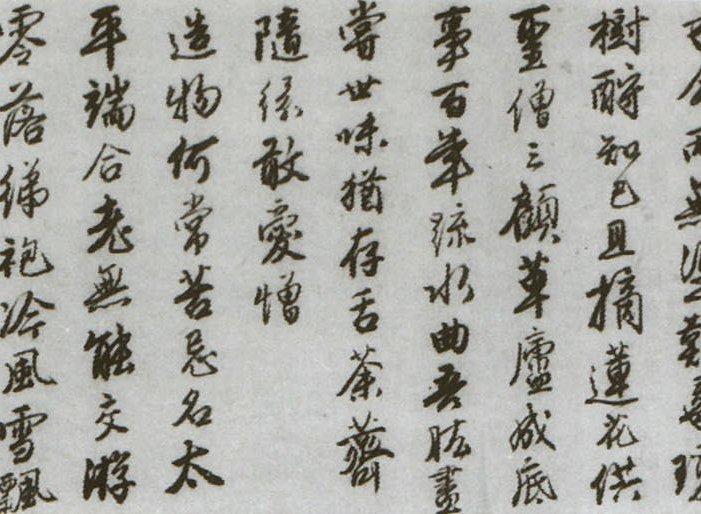 無難尋瓊
樹酹知己且摘蓮花供
聖僧三顧草廬成底
事百年疏水曲吾肱盡
嘗世味猶存舌荼薺
隨緣敢愛憎
造物何常苦忌名太
平端合老無能交游
零落綈袍冷風雪飄